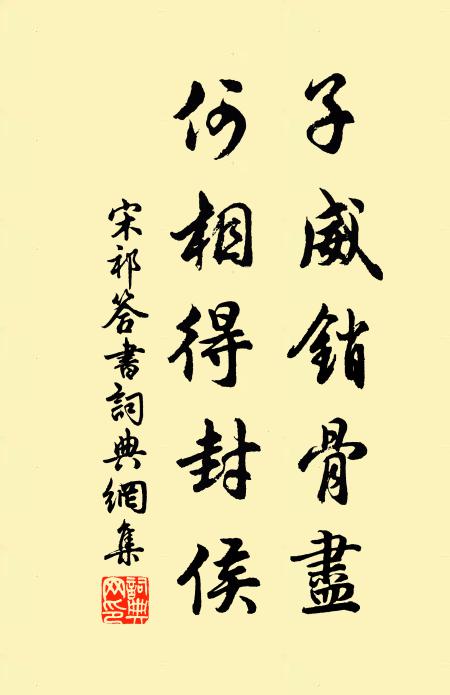 子威銷骨盡
何相得封侯
宋祁答書詞典網集
詞典網印